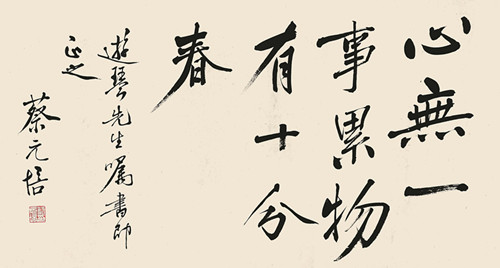 心無一
事累物
有十分
春
遊琴先生嘱書即
正之
蔡元培